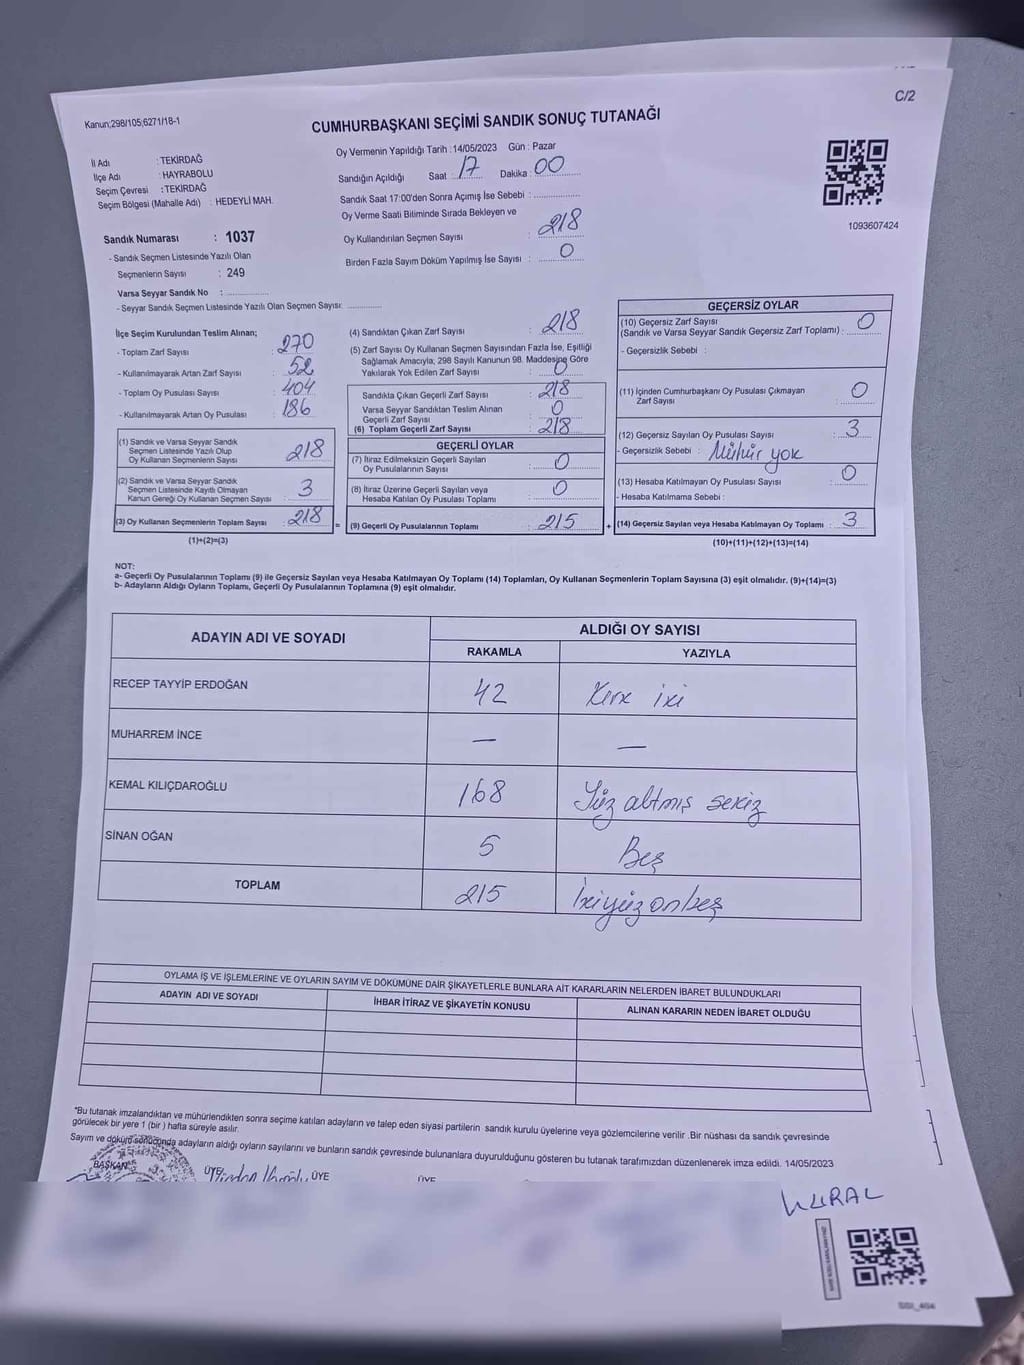 C/2
Kanun;298/105;6271/18-1
CUMHURBAŞKANI SEÇİMİ SANDIK SONUÇ TUTANAĞI
İl Adı : TEKİRDAĞ
İlçe Adı : HAYRABOLU
Seçim Çevresi : TEKİRDAĞ
Seçim Bölgesi (Mahalle Adı) : HEDEYLİ MAH.
Sandık Numarası : 1037
- Sandık Seçmen Listesinde Yazılı Olan
Seçmenlerin Sayısı : 249
Varsa Seyyar Sandık No :
- Seyyar Sandık Seçmen Listesinde Yazılı Olan Seçmen Sayısı:
Oy Vermenin Yapıldığı Tarih : 14/05/2023 Gün : Pazar
Sandığın Açıldığı Saat : 17 Dakika : 00
Sandık Saat 17:00'den Sonra Açımış İse Sebebi :
Oy Verme Saati Bitiminde Sırada Bekleyen ve
Oy Kullandırılan Seçmen Sayısı : 218
Birden Fazla Sayım Döküm Yapılmış İse Sayısı : 0
1093607424
İlçe Seçim Kurulundan Teslim Alınan;
- Toplam Zarf Sayısı : 270
- Kullanılmayarak Artan Zarf Sayısı : 52
- Toplam Oy Pusulası Sayısı : 404
- Kullanılmayarak Artan Oy Pusulası : 186
(1) Sandık ve Varsa Seyyar Sandık
Seçmen Listesinde Yazılı Olup
Oy Kullanan Seçmenlerin Sayısı : 218
(2) Sandık ve Varsa Seyyar Sandık
Seçmen Listesinde Kayıtlı Olmayan
Kanun Gereği Oy Kullanan Seçmen Sayısı : 3
(3) Oy Kullanan Seçmenlerin Toplam Sayısı : 218
(1)+(2)=(3)
(4) Sandıktan Çıkan Zarf Sayısı : 218
(5) Zarf Sayısı Oy Kullanan Seçmen Sayısından Fazla İse, Eşitliği
Sağlamak Amacıyla, 298 Sayılı Kanunun 98. Maddesine Göre
Yakılarak Yok Edilen Zarf Sayısı : 0
Sandıkta Çıkan Geçerli Zarf Sayısı : 218
Varsa Seyyar Sandıktan Teslim Alınan
Geçerli Zarf Sayısı : 0
(6) Toplam Geçerli Zarf Sayısı : 218
GEÇERLİ OYLAR
(7) İtiraz Edilmeksizin Geçerli Sayılan
Oy Pusulalarının Sayısı : 0
(8) İtiraz Üzerine Geçerli Sayılan veya
Hesaba Katılan Oy Pusulası Toplamı : 0
= (9) Geçerli Oy Pusulalarının Toplamı : 215
GEÇERSİZ OYLAR
(10) Geçersiz Zarf Sayısı
(Sandık ve Varsa Seyyar Sandık Geçersiz Zarf Toplamı) : 0
- Geçersizlik Sebebi :
(11) İçinden Cumhurbaşkanı Oy Pusulası Çıkmayan
Zarf Sayısı : 0
(12) Geçersiz Sayılan Oy Pusulası Sayısı : 3
- Geçersizlik Sebebi : Mühür yok
(13) Hesaba Katılmayan Oy Pusulası Sayısı : 0
- Hesaba Katılmama Sebebi :
+ (14) Geçersiz Sayılan veya Hesaba Katılmayan Oy Toplamı : 3
(10)+(11)+(12)+(13)=(14)
NOT:
a- Geçerli Oy Pusulalarının Toplamı (9) ile Geçersiz Sayılan veya Hesaba Katılmayan Oy Toplamı (14) Toplamları, Oy Kullanan Seçmenlerin Toplam Sayısına (3) eşit olmalıdır. (9)+(14)=(3)
b- Adayların Aldığı Oyların Toplamı, Geçerli Oy Pusulalarının Toplamına (9) eşit olmalıdır.
ADAYIN ADI VE SOYADI ALDIĞI OY SAYISI
RAKAMLA YAZIYLA
RECEP TAYYİP ERDOĞAN 42 Kırk iki
MUHARREM İNCE — —
KEMAL KILIÇDAROĞLU 168 Yüz altmış sekiz
SİNAN OĞAN 5 Beş
TOPLAM 215 İkiyüz onbeş
OYLAMA İŞ VE İŞLEMLERİNE VE OYLARIN SAYIM VE DÖKÜMÜNE DAİR ŞİKAYETLERLE BUNLARA AİT KARARLARIN NELERDEN İBARET BULUNDUKLARI
ADAYIN ADI VE SOYADI İHBAR İTİRAZ VE ŞİKAYETİN KONUSU ALINAN KARARIN NEDEN İBARET OLDUĞU
*Bu tutanak imzalandıktan ve mühürlendikten sonra seçime katılan adayların ve talep eden siyasi partilerin sandık kurulu üyelerine veya gözlemcilerine verilir .Bir nüshası da sandık çevresinde
görülecek bir yere 1 (bir ) hafta süreyle asılır.
Sayım ve döküm sonucunda adayların aldığı oyların sayılarını ve bunların sandık çevresinde bulunanlara duyurulduğunu gösteren bu tutanak tarafımızdan düzenlenerek imza edildi. 14/05/2023
BAŞKAN ÜYE ÜYE ÜYE